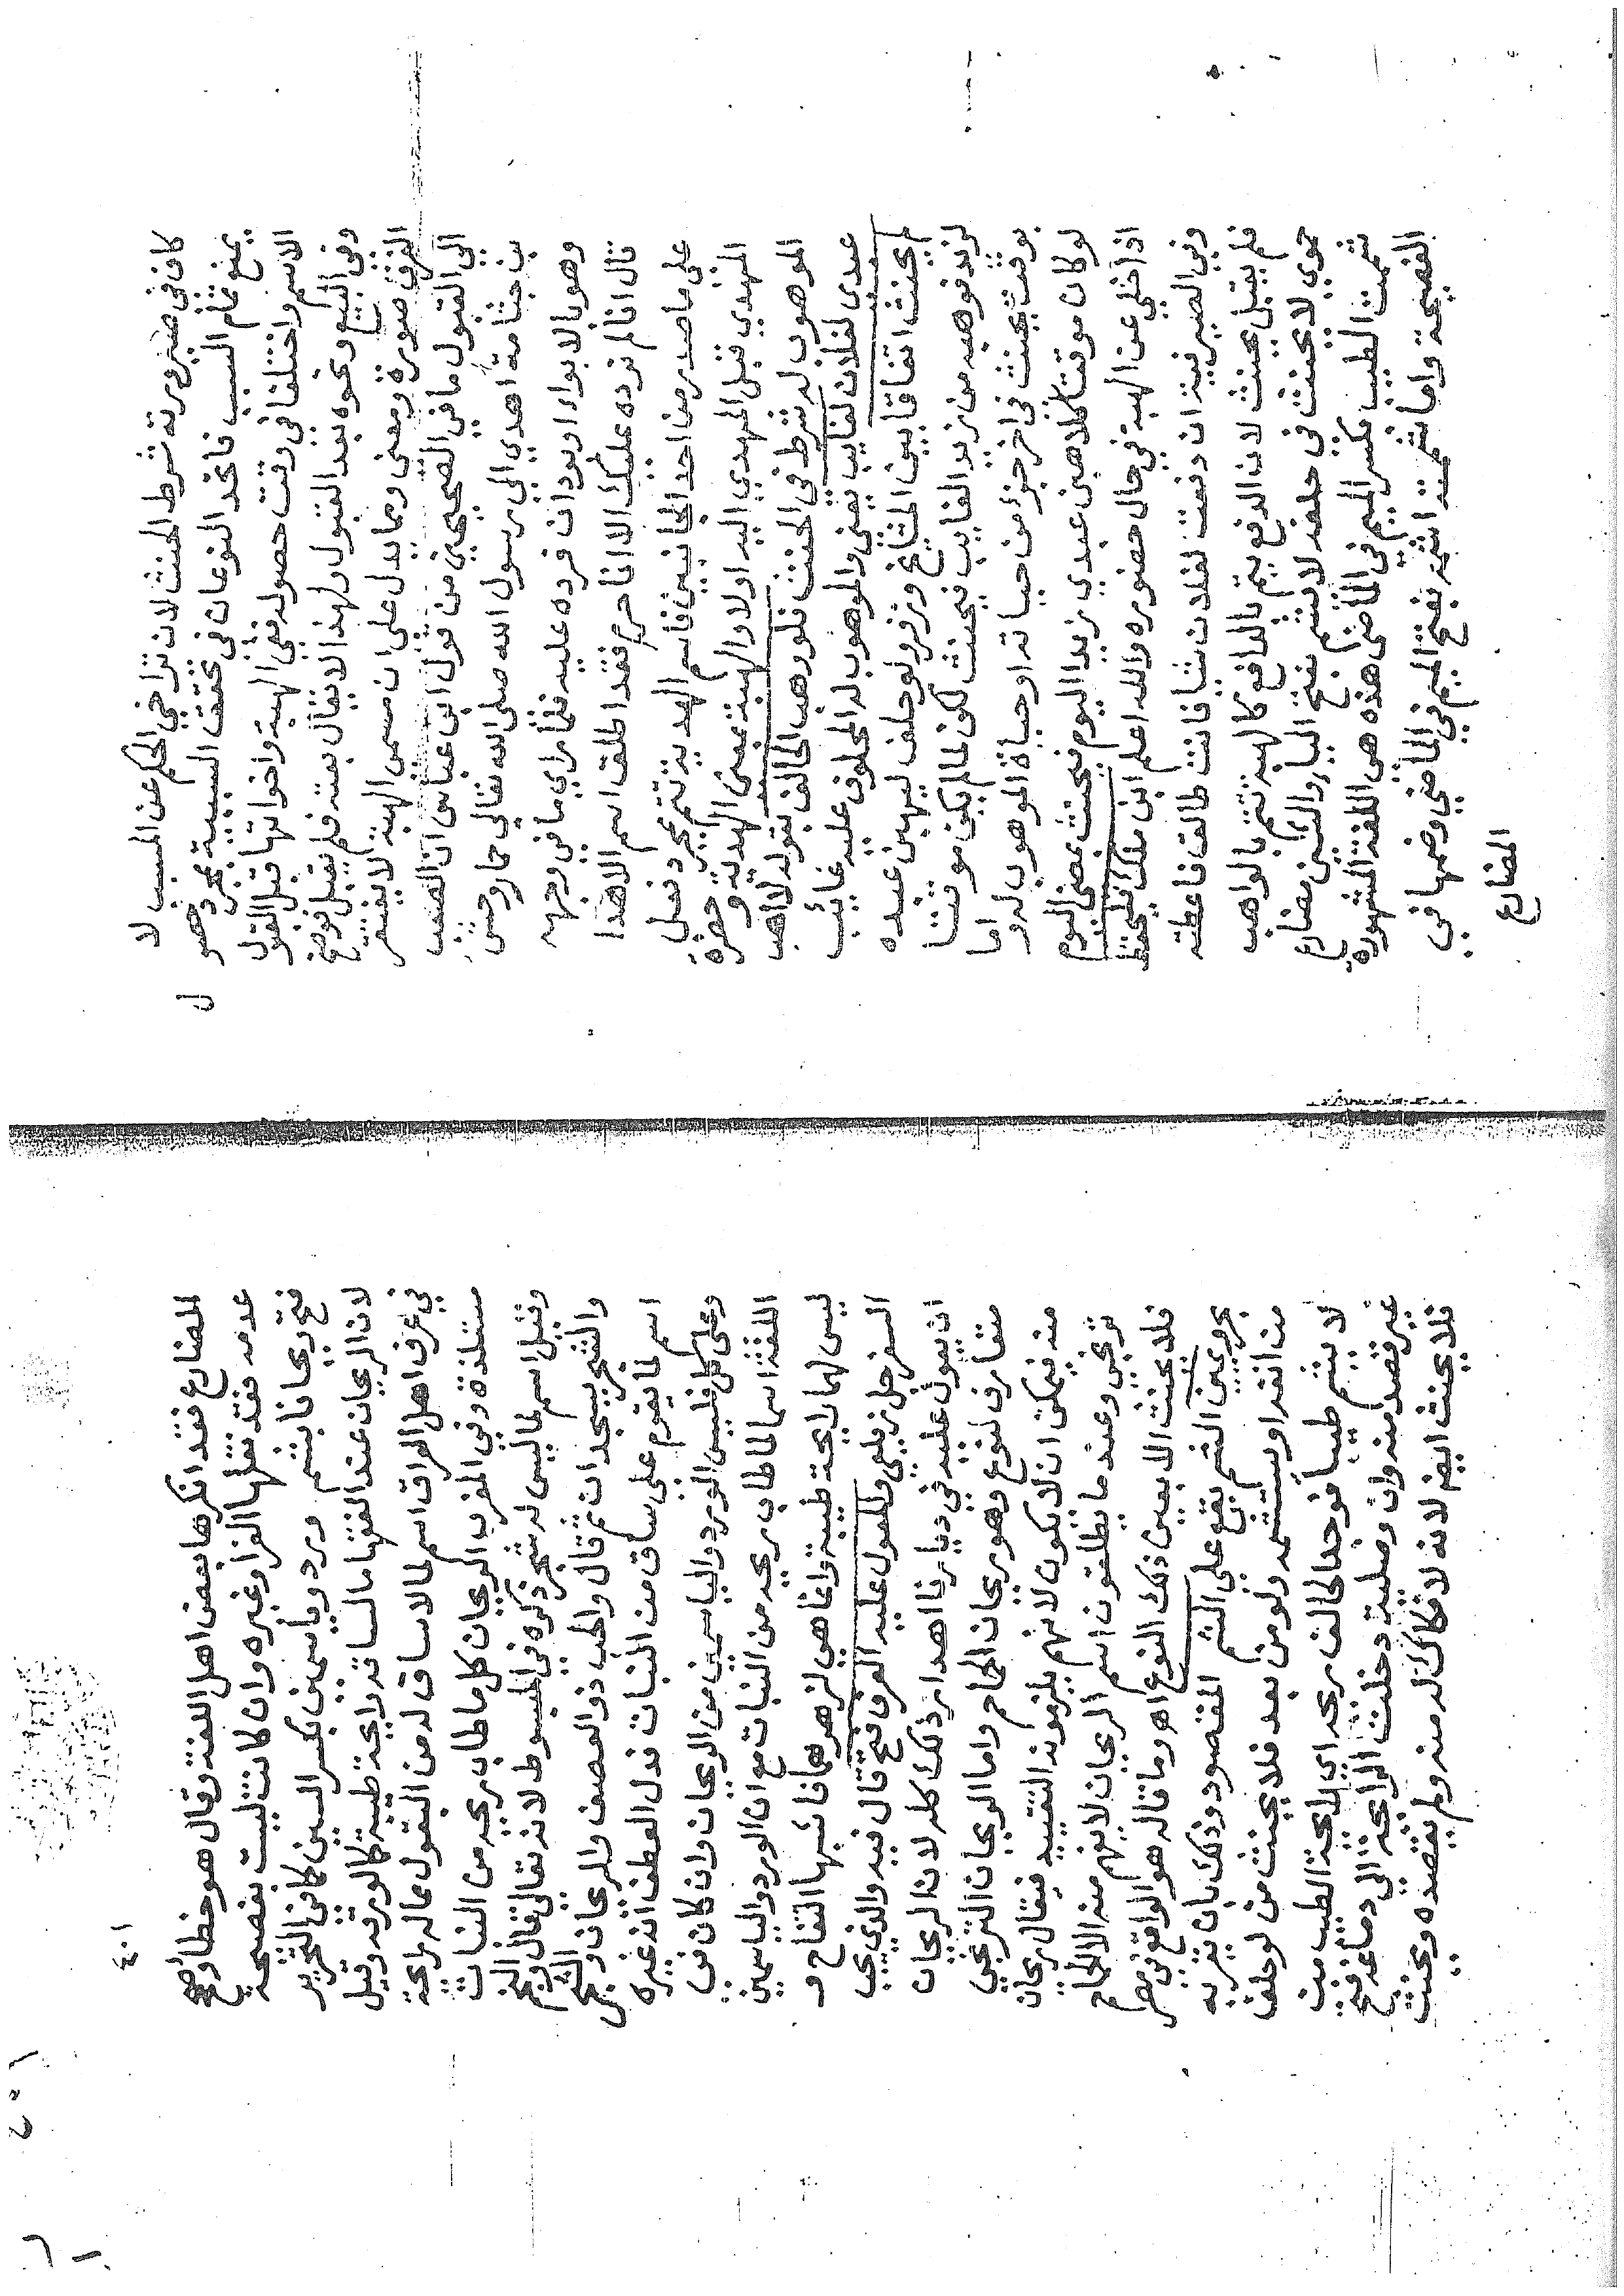 كاف في ضرورته شرط الحنث لان تراخي الحكم عن السبب لا
يمنع تمام السبب فاتحد النوعان في تحقق السببية بمجرد هبو
الاسم واختلفا في وقت حصوله ففي الهبة واخواتها قبل القبول
وفي البيع ونحوه بعد القبول ولهذا لا يقال بعته فلم يقبل فوضح
الفرق صورة ومعنى ومما يدل على ان مسمى الهبة لا يفتقر
الى القبول ما في الصحيحين من قول ابن عباس ان الصعب
بن جثامة اهدى الى رسول الله صلى الله تعالى حمار وحش
وهو بالابواء او بودان فرده عليه فلما راى ما في وجهه
قال انا لم نرده عليك الا انا حرم فقد اطلق اسم الاهدا
على ما صدر من احد الجانبين فاسم الهدية تتم بمجرد فعل
المهدي قبل المهدي اليه اولا والهبة بمعنى الهدية و حضرة
الموهوب له شرط في الحنث فلو وهب الحالف بقوله لا اهب
عبدي لفلان لغايب يعني والموهوب له المحلوف عليه غائب
لم يحنث اتفاقا بين المشايخ وزفر ولو حلف ليهبن عبده
لزيد فوهبه من زيد الغايب فيحنث لكن لم يكن موقتا
بوقت يحنث في اخر جزء من حياته او حياة الموهوب له واما
لو كان موقتا كلاهبن عبدي زيدا اليوم فيحنث بمضي اليوم
اذا خلى عن الهبة في حال حضوره والله اعلم ابن ملك ليحفظ
وفي الصيرفية ان دفعت لفلان شيا فانت طالق فاعطته
فلم يقبل يحنث لان الدفع يتم بالدافع كالهبة تتم بالواهب
حموي لا يحنث في حلفه لا يشم بفتح الياء والشين مضارع
شممت الطيب بكسر الميم في الماضي هذه هي اللغة المشهورة
الفصيحة واما شممته اشمه بفتح الميم في الماضي وضمها في
المضارع
٤٠١
المضارع فقد انكرها بعض اهل اللغة وقال هو خطا وصح
عدمه فقد نقلها الفرا وغيره وان كانت ليست بفصيحة
فتح ريحانا بشم ورد وياسمين بكسر السين كما في التحرير
لان الريحان عند الفقها ما لساقه رايحة طيبة كالورقه وقيل
في عرف اهل العراق اسم لما لا ساق له من البقول مما له رايحة
مستلذة وفي المغرب الريحان كل ما طاب ريحه من النبات
وقيل اسم لما ليس له شجر ذكره في المبسوط لانه تعالى قال والنجم
والشجر يسجدان ثم قال والحب ذو العصف والريحان والشجر
اسم لما يقوم على ساق من النبات فدل العطف انه غيره
وعلى كل فليس الورد والياسمين من الريحان وان كان في
اللغة اسما لما طاب ريحه من النبات مع ان الورد والياسمين
ليس لهما رايحة طيبة وانما هي لزهرهما فاشبها التفاح و
السفرجل زيلعي والمعول عليه العرف فتح قال فيه والذي يجب
ان يعول عليه في ديارنا اهدار ذلك كله لان الريحان
متعارف لنوع وهو ريحان الحماحم واما الريحان الترنجي
منه فيمكن ان لا يكون لانهم يلزمونه التقييد فيقال ريحان
ترنجي وعند ما يطلقون اسم الريحان لا يفهم منه الا الحماحم
فلا يحنث الا بعين ذلك النوع اهـ وما قاله هو الواقع في مصر
بحر ويمين الشم يقع على الشم المقصود وذلك بان يقربه
من انفه او يستشمه ولو من بعد فلا يحنث من لو حلف
لا يشم طيبا فوجد الحالف ريحه اي رايحة الطيب من
غير قصد منه وان وصلية دخلت الرايحة الى دماغه فتح
فلا يحنث ايضا لانه لا فكاك له منه ولم يقصده ويحنث